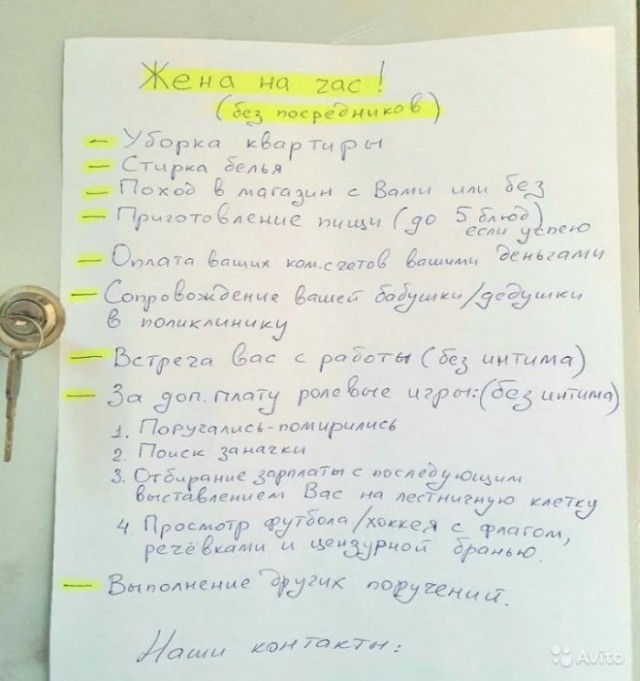 Жена на час!
(без посредников)
— Уборка квартиры
— Стирка белья
— Поход в магазин с Вами или без
— Приготовление пищи (до 5 блюд)
если успею
— Оплата ваших ком. счетов вашими деньгами
— Сопровождение вашей бабушки/дедушки
в поликлинику
— Встреча вас с работы (без интима)
— За доп. плату ролевые игры: (без интима)
1. Поругались-помирились
2. Поиск заначки
3. Отбирание зарплаты с последующим
выставлением Вас на лестничную клетку
4. Просмотр футбола/хоккея с флагом,
речёвками и цензурной бранью.
— Выполнение других поручений.
Наши контакты:
Avito